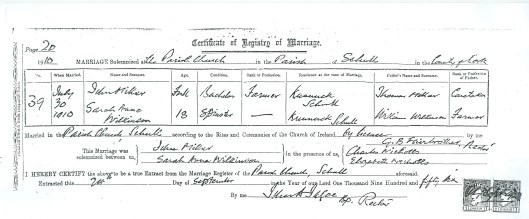 Certificate of Registry of Marriage.
Page 20
1910 MARRIAGE Solemnized at the Parish Church in the Parish of Schull in the County of Cork
When Married. Name and Surname. Age. Condition. Rank or Profession. Residence at the time of Marriage. Father's Name and Surname. Rank or Profession of Father.
39 July 30 1910 John Bachelor Farmer Schull Thomas Caretaker
Sarah Anne Wilkinson 18 Spinster — Schull William Wilkinson Farmer
Married in the Parish Church, Schull according to the Rites and Ceremonies of the Church of Ireland, by licence by me
Rector
This Marriage was solemnized between us, John
Sarah Anna Wilkinson
In the presence of us, Charles Nicholls
Elizabeth Nicholls
I HEREBY CERTIFY this to be a true Extract from the Marriage Register of the Parish Church, Schull aforesaid.
Extracted this Day of September in the Year of our Lord One Thousand Nine Hundred and fifty six
By me Rector